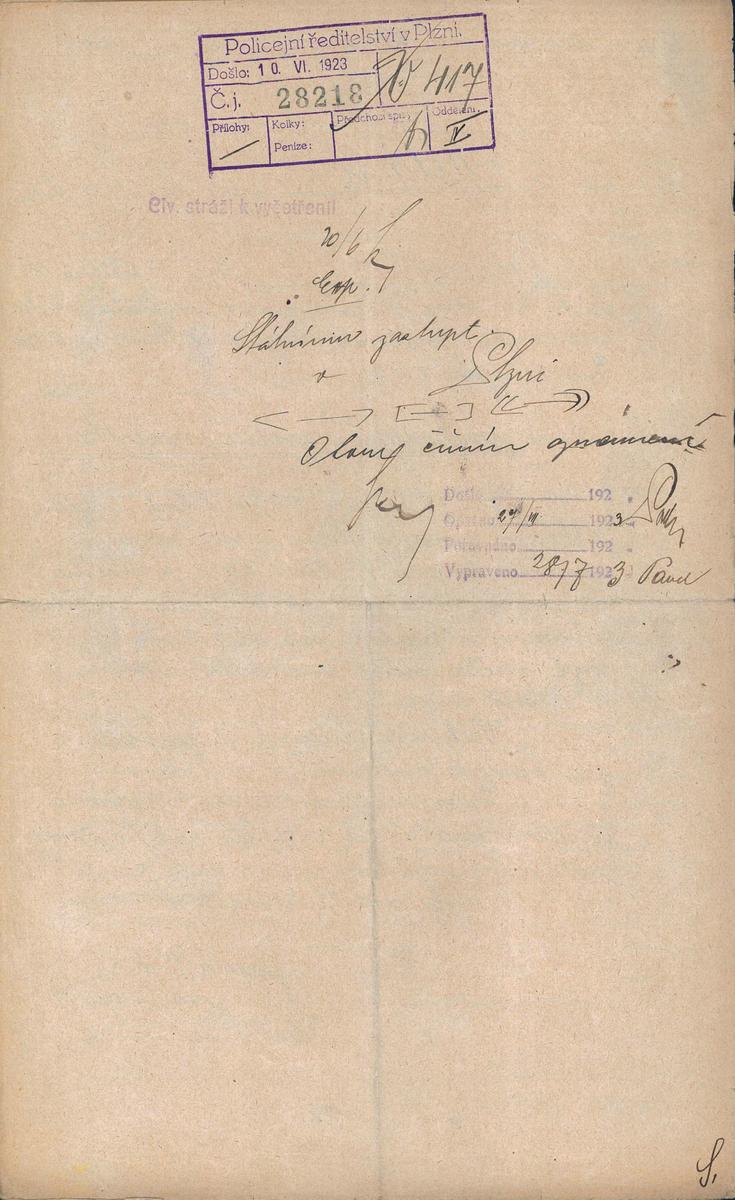 Policejní ředitelství v Plzni.
Došlo: 10. VI. 1923
Č. j. 28218 417
Přílohy: Kolky: Předchozí spisy: Oddělení:
Peníze: IV
Civ. stráži k vyšetření!
20/6
Exp.
Státnímu zastupt.
v Plzni
činím oznámení
Došlo 192
Opsáno 27/ 1923
Porovnáno 192
Vypraveno 28/7 1923
S.